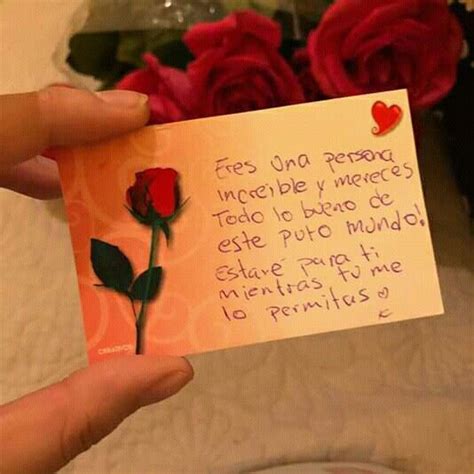 Eres una persona
increíble y mereces
Todo lo bueno de
este puto mundo!
Estaré para ti
mientras tu me
lo permitas
K